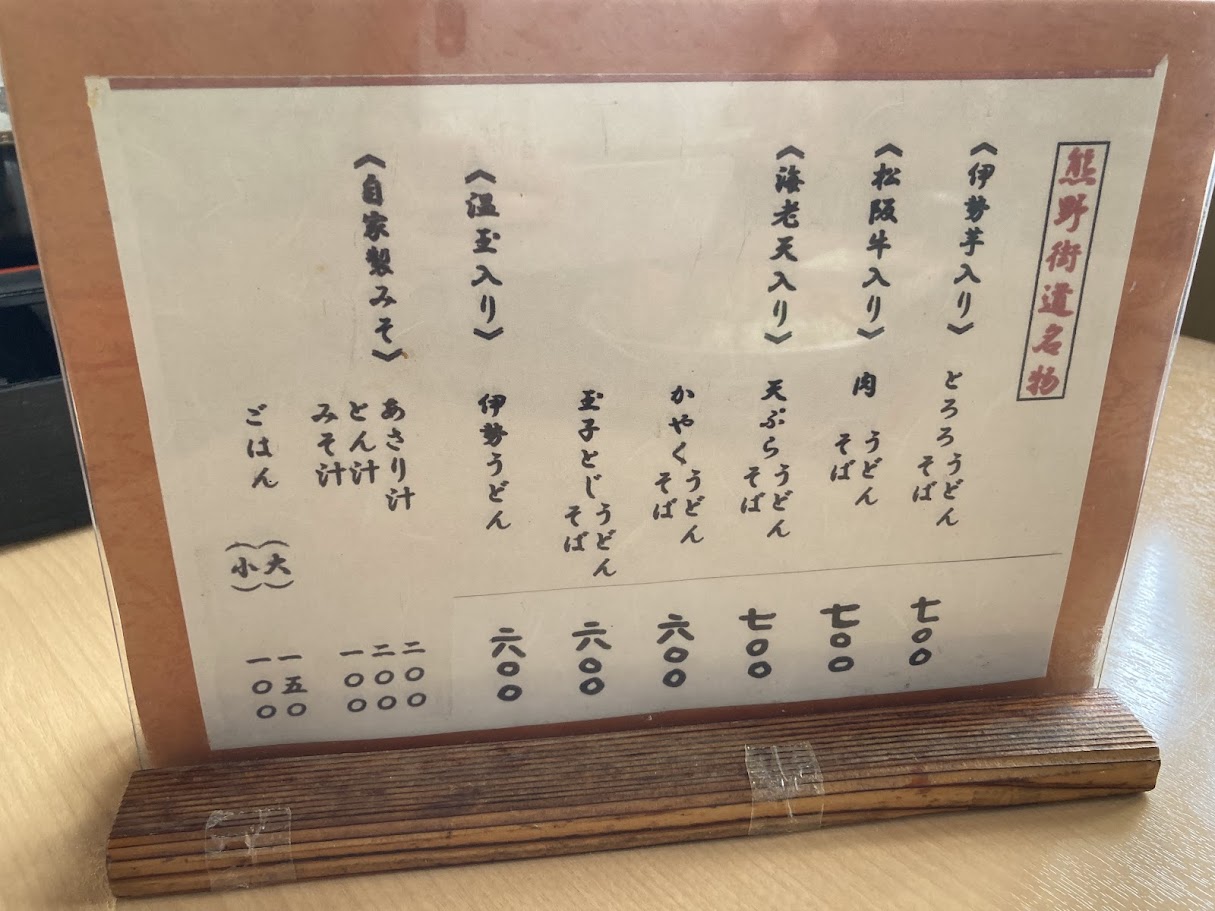 熊野街道名物
《伊勢芋入り》 とろろうどん そば 七〇〇
《松阪牛入り》 肉 うどん そば 七〇〇
《海老天入り》 天ぷらうどん そば 七〇〇
かやくうどん そば 六〇〇
玉子とじうどん そば 六〇〇
《温玉入り》 伊勢うどん 六〇〇
《自家製みそ》 あさり汁 二〇〇
とん汁 二〇〇
みそ汁 一〇〇
ごはん (大) 一五〇
(小) 一〇〇